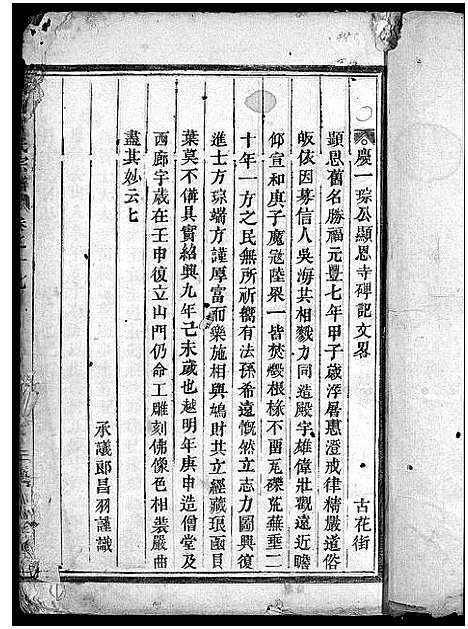 慶一琮公顯恩寺碑記文畧 古花街
顯恩舊名勝福元豐七年甲子歲浮屠惠澄戒律精嚴道俗
皈依因募信人吳海其相戮力同造殿宇雄偉壯觀遠近瞻
仰宣和庚子魔寇陸梁一皆焚燬根椽不畱瓦礫荒蕪垂二
十年一方之民無所祈嚮有法孫希遠慨然立志力圖興復
進士方琮端方謹厚富而樂施相與鳩財共立經藏琅函貝
葉莫不備具實紹興九年己未歲也越明年庚申造僧堂及
西廊宇歲在壬申復立山門仍命工雕刻佛像色相裝嚴曲
盡其妙云七
承議郎昌羽謹識